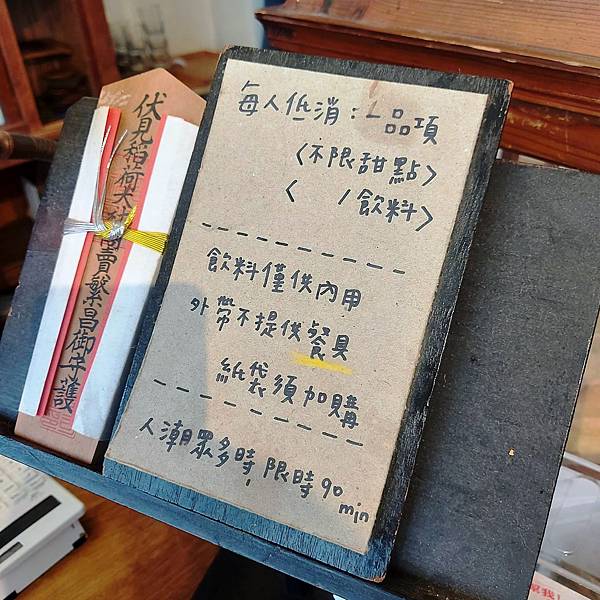 伏見稲荷大社商売繁昌御守護
每人低消:1品項
〈不限甜點〉
〈 /飲料〉
飲料僅供內用
外帶不提供餐具
紙袋須加購
人潮眾多時,限時90min